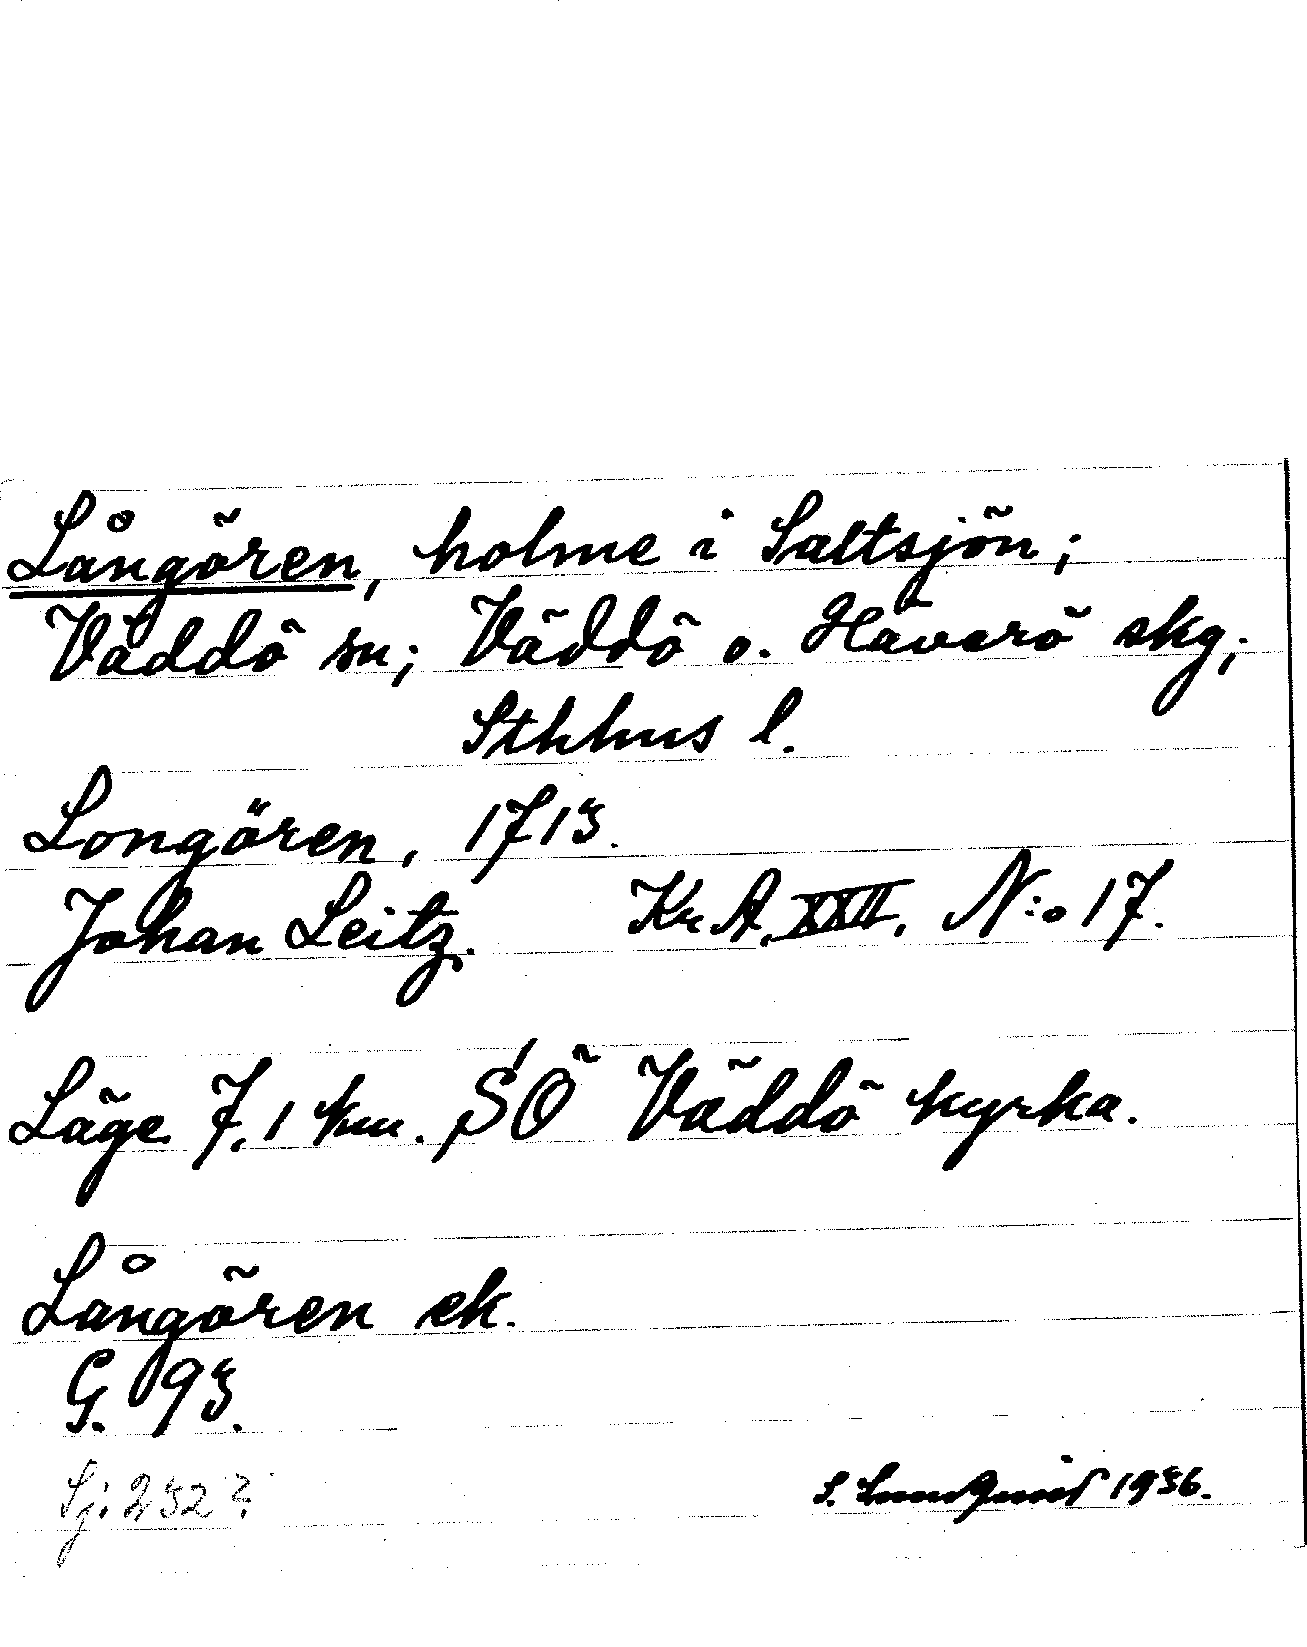 Långören, holme i Saltsjön;
Väddö sn; Väddö o. Häverö skg;
Sthlms l.
Longören, 1713.
Johan Leitz. Kr. A. XXII. N:o 17.
Läge 7,1 km. SÖ Väddö kyrka.
Långören ek.
G. 93.
Sj. 232?
S. Lundquist 1936.